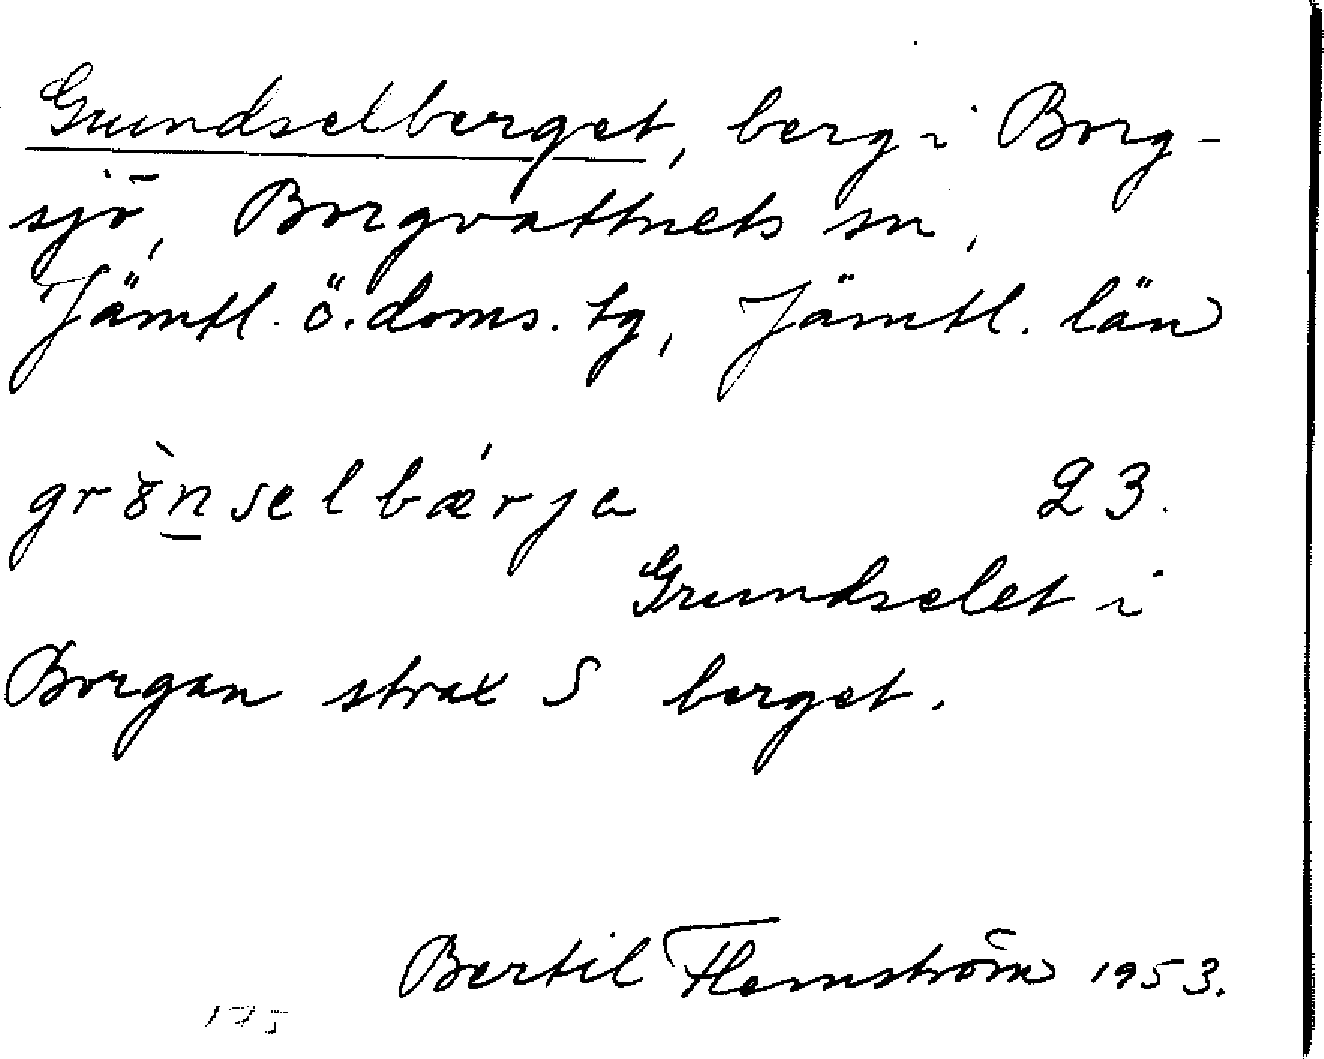 Grundselberget, berg i Borg-
sjö, Borgvattnets sn,
Jämtl. ö. doms. tg, Jämtl. län
23.
Grundselet i
Borgan strax S berget.
Bertil Flemström 1953.
175